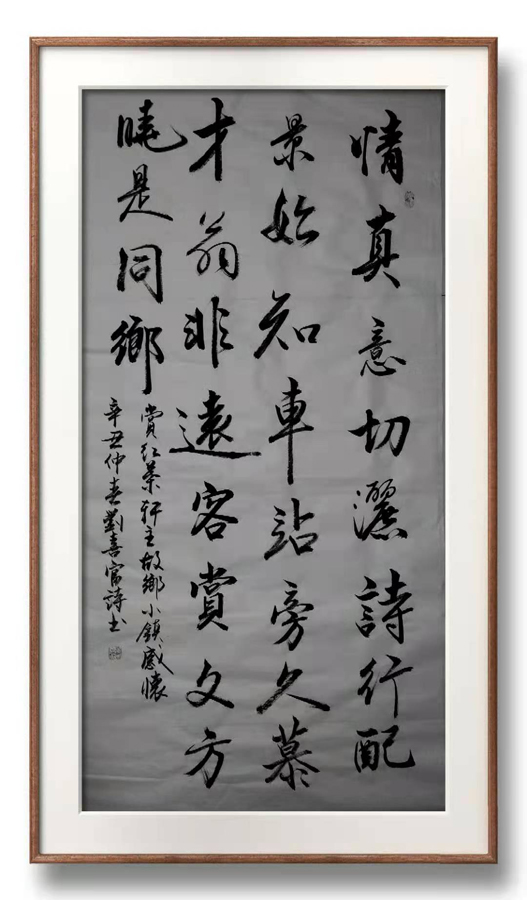 情真意切灑詩行配
景始知車站旁久慕
才翁非遠客賞文方
曉是同鄉
賞紅葉軒主故鄉小鎮感懷
辛丑仲春劉喜富詩書